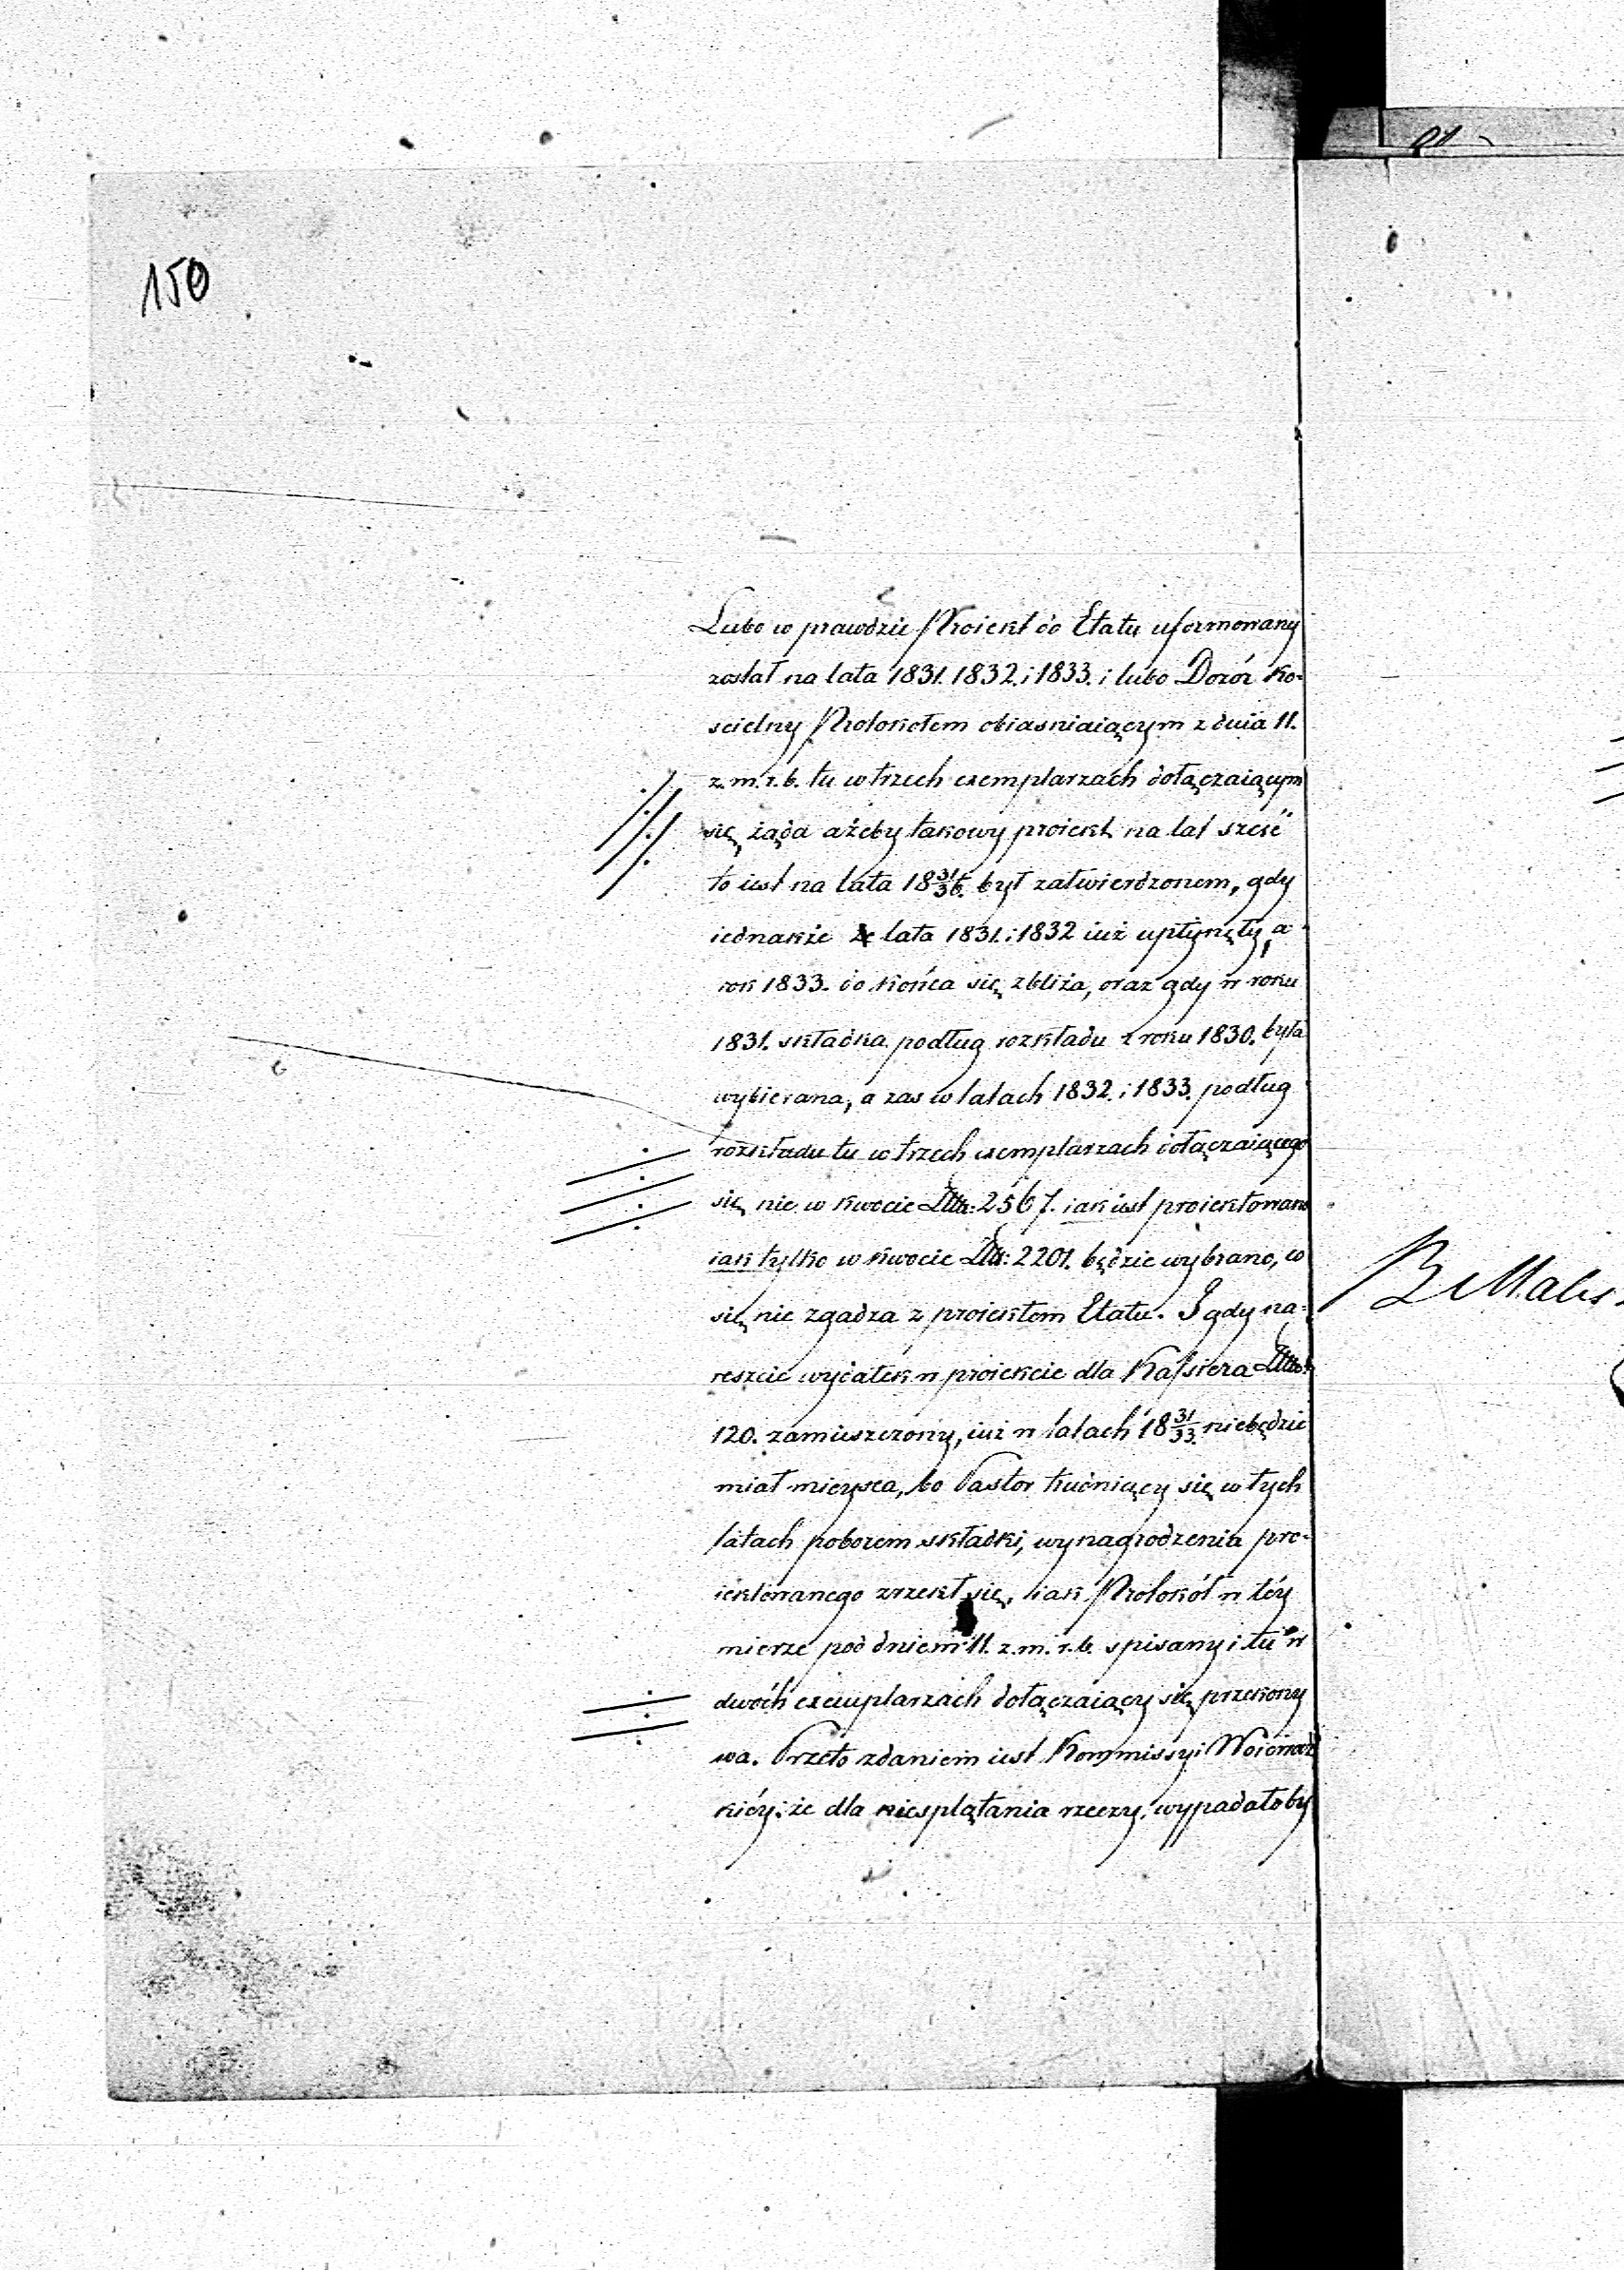 150
Lubo w prawdzie Proiekt do Etatu uformowany
został na lata 1831. 1832. i 1833. i lubo Dozór Ko-
scielny Protokołem obiasniaiącym z dnia 11.
z. m. r. b. tu w trzech exemplarzach dołączaiącym
się, żąda ażeby takowy proiekt na lat sześć
to iest na lata 18 31/36. był zatwierdzonem, gdy
iednakże lata 1831. i 1832 iuż upłynęły, a
rok 1833. do końca się zbliża, oraz gdy w roku
1831. składka podług rozkładu z roku 1830. była
wybierana, a zas w latach 1832. i 1833. podług
rozkładu tu w trzech exemplarzach dołączaiącego
się nie w kwocie 2567. iak iest proiektowano
iak tylko w kwocie 2201. będzie wybrano, co
się nie zgadza z proiektem Etatu. I gdy na-
reszcie wydatek w proiekcie dla Kassiera
120. zamieszczony, iuż w latach 18 31/33. niebędzie
miał mieysca, bo Pastor trudniący się w tych
latach poborem składki, wynagrodzenia pro-
iektowanego zrzekł się, iak Protokół w téy
mierze pod dniem 11. z. m. r. b. spisany i tu w
dwóch exemplarzach dołączaiący się przekony
wa. Przeto zdaniem iest Kommissyi Woiewódz
kiéy: że dla niesplątania rzeczy, wypadałoby